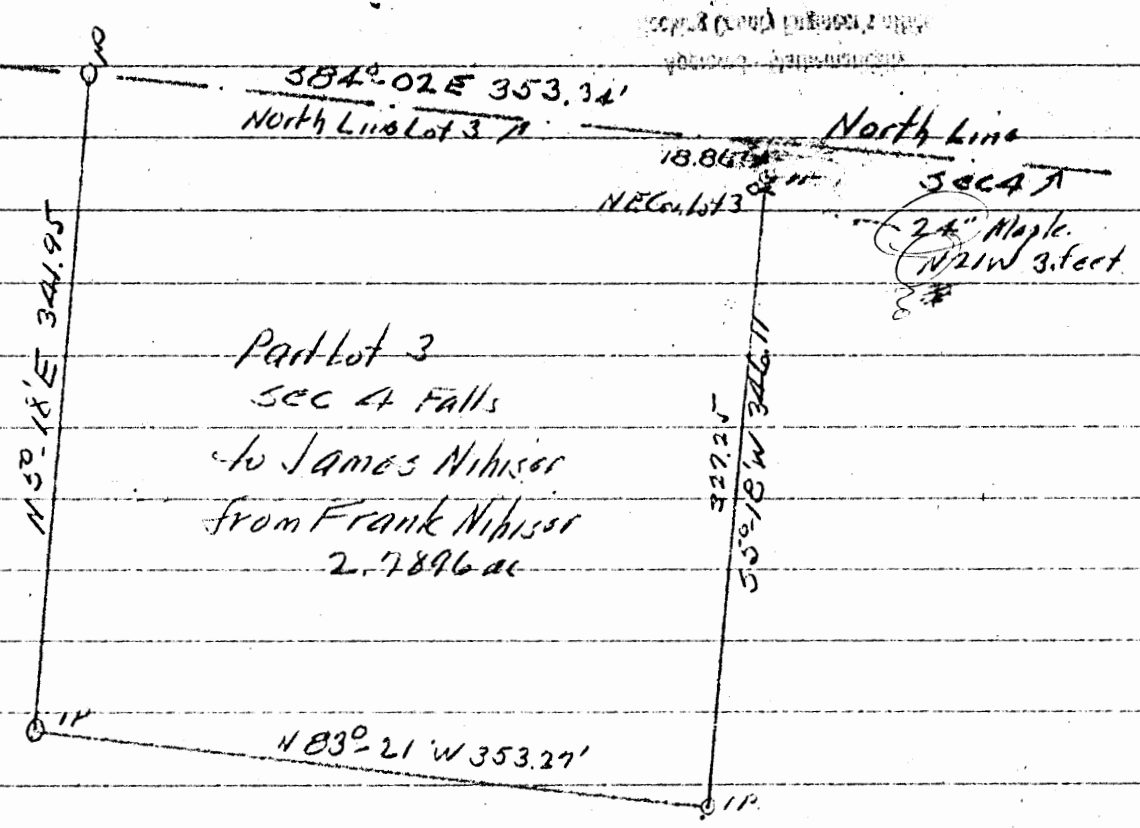 IP
S84°-02E 353.34'
North Line Lot 3
North Line
Sec 4
18.86
NE Cor. Lot 3
24" Maple.
N21W 3. feet
N 5°-18' E 341.95
Part Lot 3
Sec 4 Falls
to James Nihiser
from Frank Nihiser
2.7896 ac
327.25
S5°-18'W 346.11
IP
N 83°-21'W 353.27'
IP.